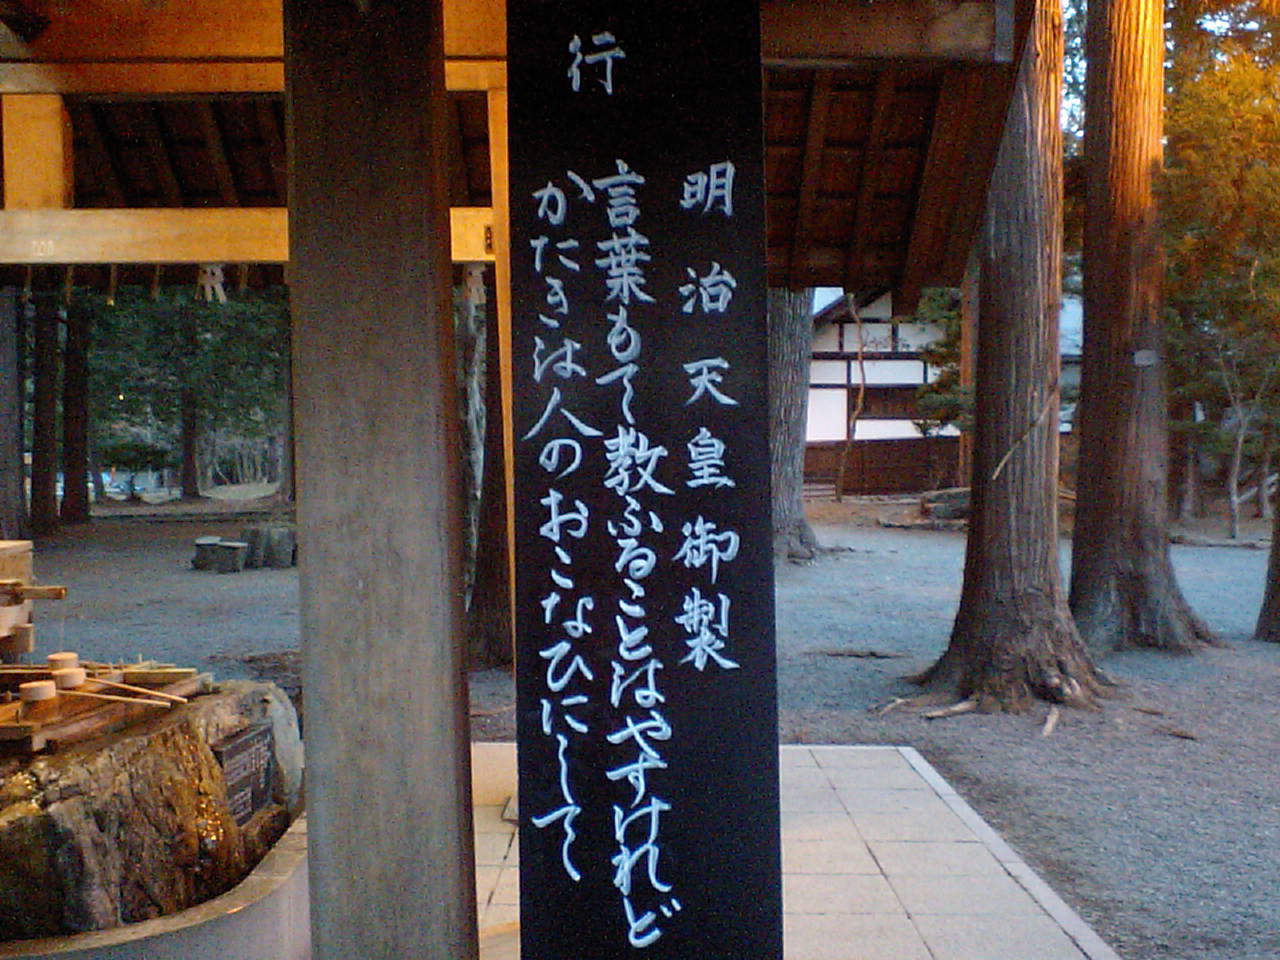 行
明治天皇御製
言葉もて教ふることはやすけれど
かたきは人のおこなひにして